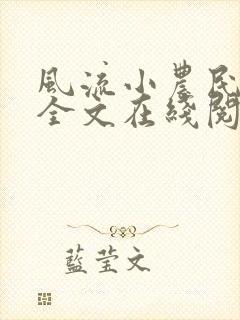 風流小農民
全文在綫閱
藍莹文